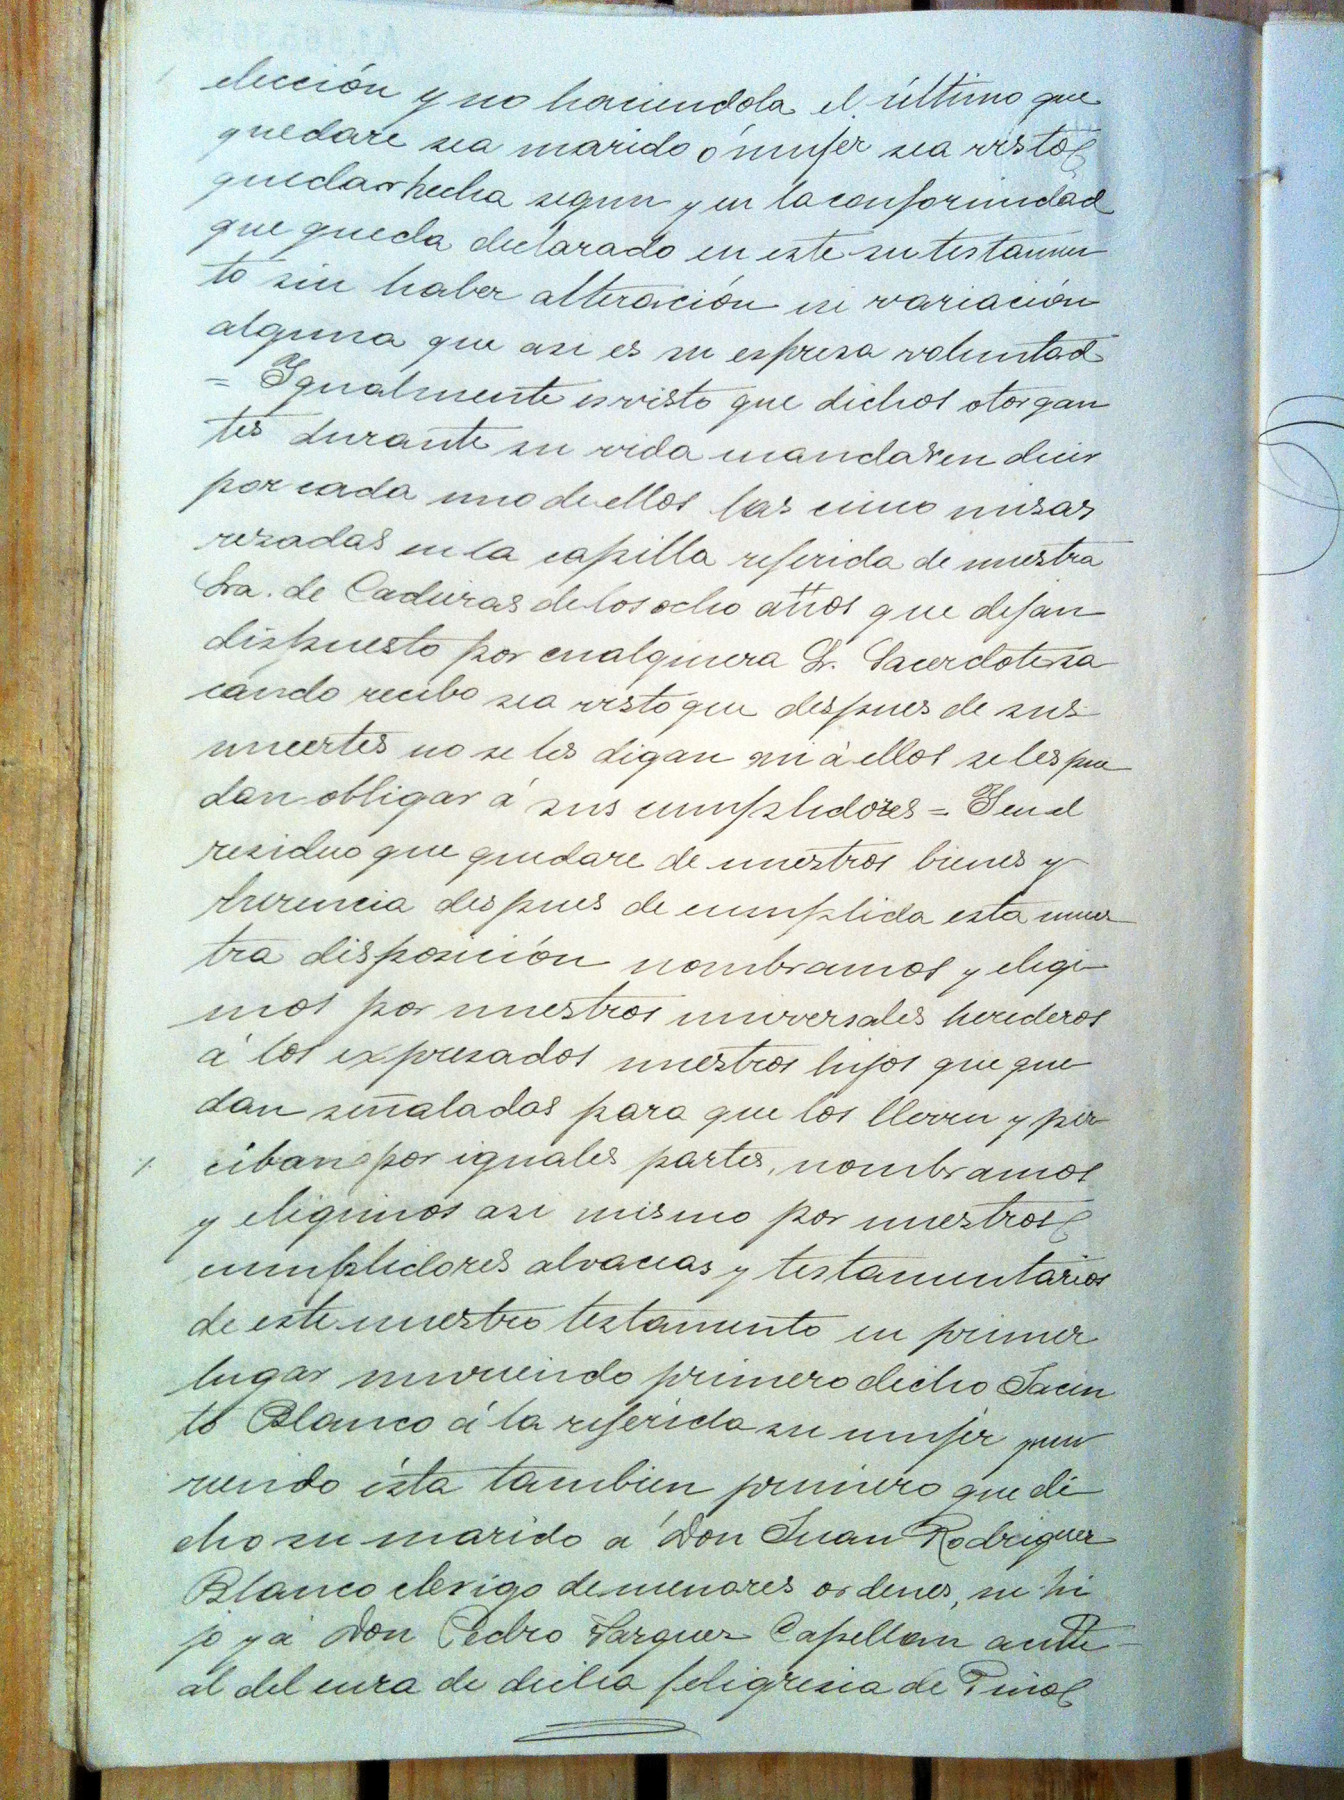 elección y no haciendola el último que
quedare sea marido ó mujer sea visto
quedar hecha segun y en la conformidad
que queda declarado en este su testamen
to sin haber alteración ni variación
alguna que asi es su espresa voluntad
= Ygualmente es visto que dichos otorgan
tes durante su vida mandasen decir
por cada uno de ellos las cinco misas
rezadas en la capilla referida de nuestra
Sra. de Cadeiras de los ocho años que dejan
dispuesto por cualquiera Sr. Sacerdote sa
cando recibo sea visto que despues de sus
muertes no se les digan ni á ellos se les pue
dan obligar á sus cumplidores = Y en el
residuo que quedare de nuestros bienes y
herencia despues de cumplida esta nues
tra disposición nombramos y elegi
mos por nuestros universales herederos
á los expresados nuestros hijos que que
dan señalados para que los lleven y per
ciban por iguales partes, nombramos
y elegimos asi mismo por nuestros
cumplidores alvaceas y testamentarios
de este nuestro testamento en primer
lugar muriendo primero dicho Jacin
to Blanco á la referida su mujer y mu
riendo ésta tambien primero que di
cho su marido a Don Juan Rodriguez
Blanco clerigo de menores ordenes, su hi
jo y a Don Pedro Vazquez Capellan actu
al del cura de dicha feligresia de Piñol